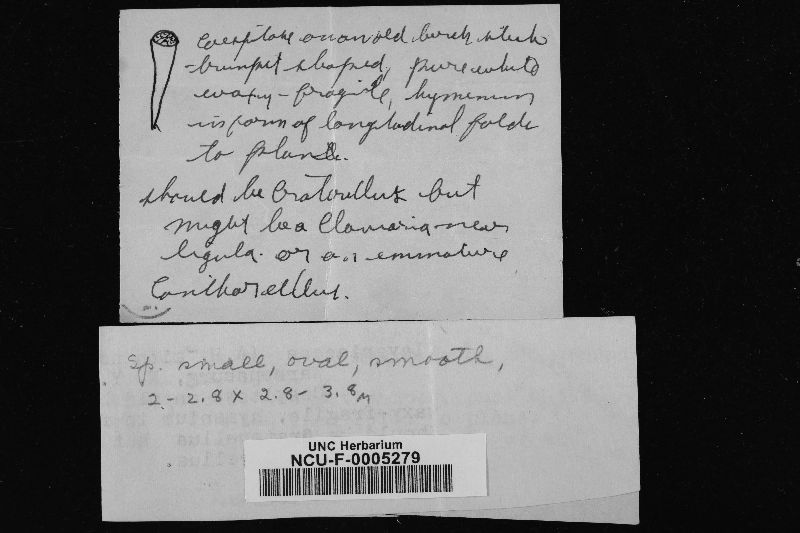 caespitose on an old birch stick
trumpet shaped, pure white
waxy-fragile, hymenium
in form of longitudinal folds
to plane.
should be Craterellus but
might be a Clavaria near
ligula. or an immature
Cantharellus.
Sp. small, oval, smooth,
2.-2.8 x 2.8-3.8µ
UNC Herbarium
NCU-F-0005279